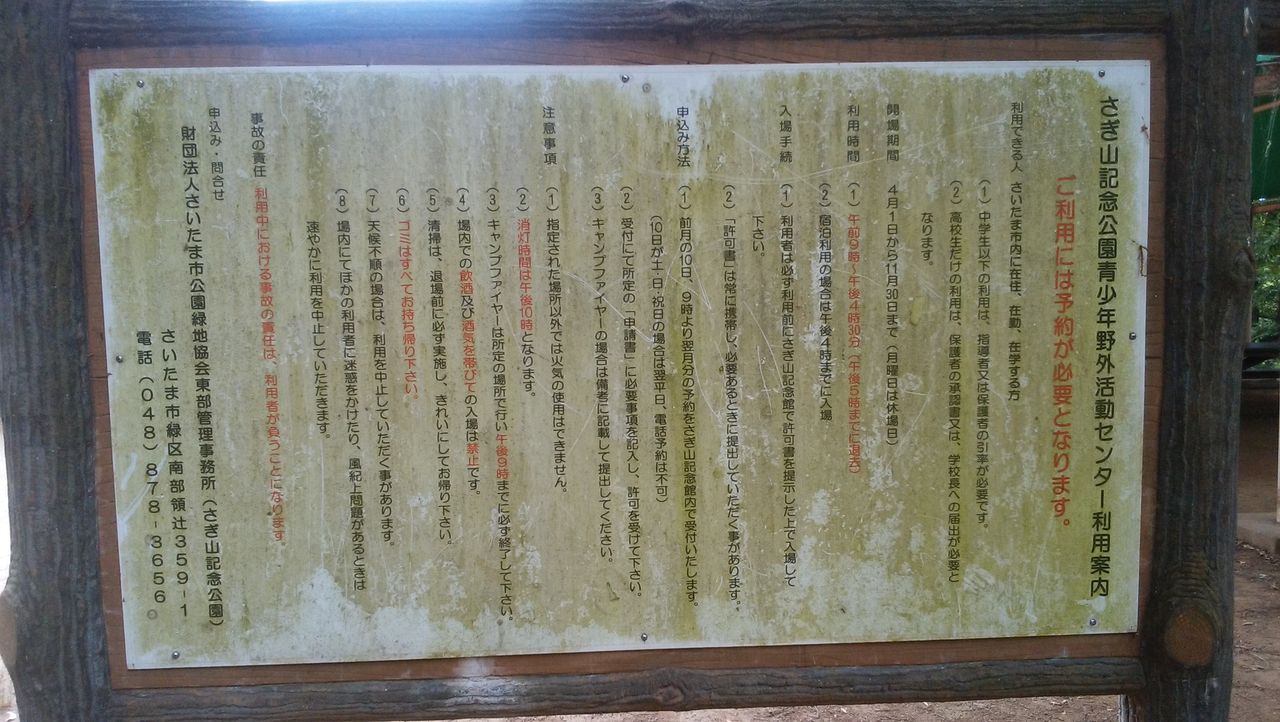 さぎ山記念公園青少年野外活動センター利用案内
ご利用には予約が必要となります。
利用できる人 さいたま市内に在住、在勤、在学する方
(1) 中学生以下の利用は、指導者又は保護者の引率が必要です。
(2) 高校生だけの利用は、保護者の承認書又は、学校長への届出が必要と
なります。
開場期間 4月1日から11月30日まで(月曜日は休場日)
利用時間 (1) 午前9時～午後4時30分(午後5時までに退去)
(2) 宿泊利用の場合は午後4時までに入場
入場手続 (1) 利用者は必ず利用前にさぎ山記念館で許可書を提示した上で入場して
下さい。
(2) 「許可書」は常に携帯し、必要あるときに提出していただく事があります。
申込み方法 (1) 前月の10日、9時より翌月分の予約をさぎ山記念館内で受付いたします。
(10日が土・日・祝日の場合は翌平日、電話予約は不可)
(2) 受付にて所定の「申請書」に必要事項を記入し、許可を受けて下さい。
(3) キャンプファイヤーの場合は備考に記載して提出してください。
注意事項 (1) 指定された場所以外では火気の使用はできません。
(2) 消灯時間は午後10時となります。
(3) キャンプファイヤーは所定の場所で行い午後9時までに必ず終了して下さい。
(4) 場内での飲酒及び酒気を帯びての入場は禁止です。
(5) 清掃は、退場前に必ず実施し、きれいにしてお帰り下さい。
(6) ゴミはすべてお持ち帰り下さい。
(7) 天候不順の場合は、利用を中止していただく事があります。
(8) 場内にてほかの利用者に迷惑をかけたり、風紀上問題があるときは
速やかに利用を中止していただきます。
事故の責任 利用中における事故の責任は、利用者が負うことになります。
申込み・問合せ
財団法人さいたま市公園緑地協会東部管理事務所(さぎ山記念公園)
さいたま市緑区南部領辻359-1
電話(048)878-3656